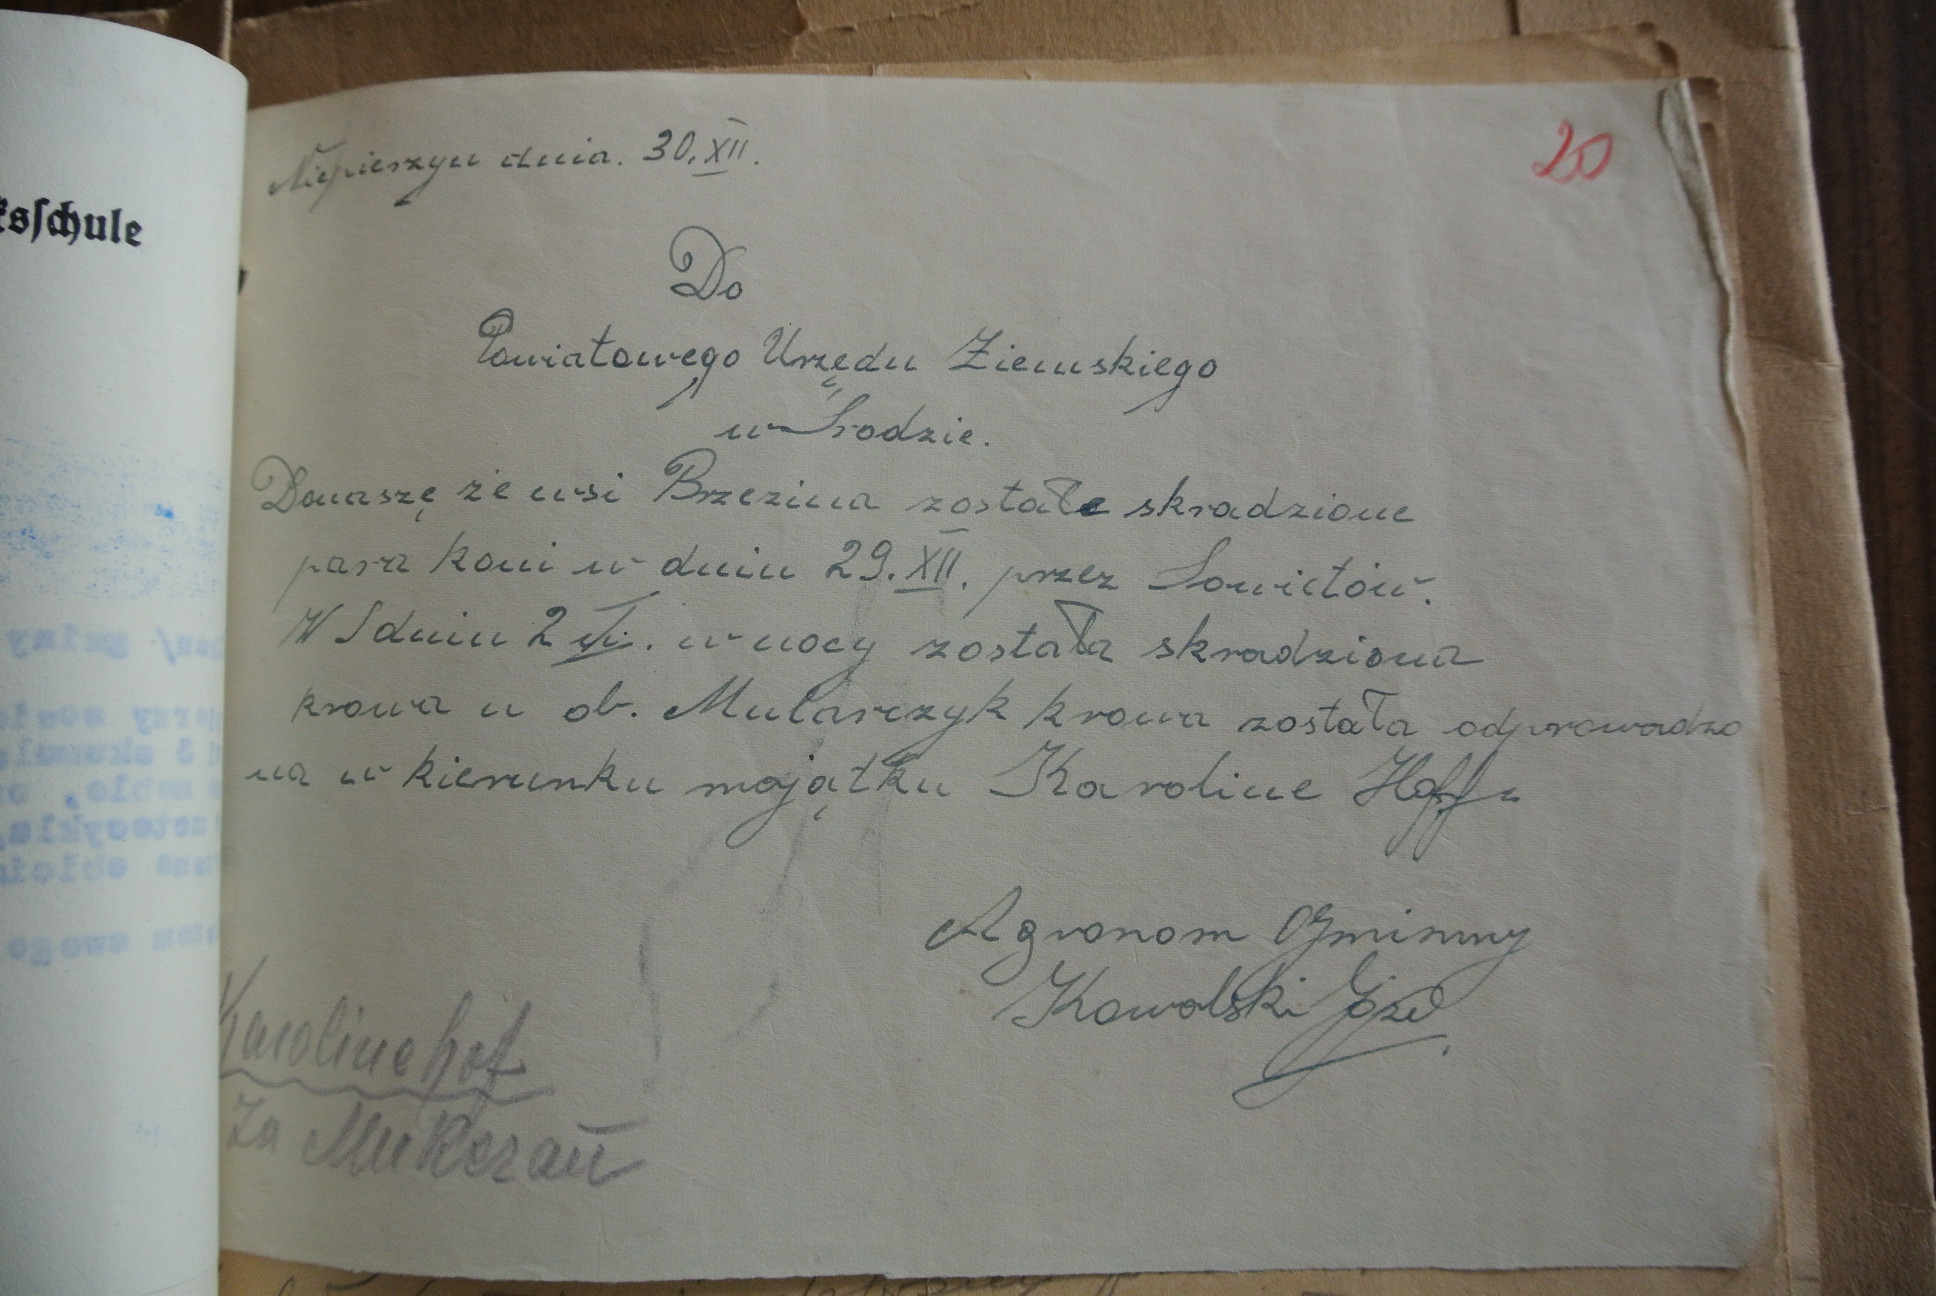 ksschule
Niepierzyn dnia. 30.XII.
20
Do
Powiatowego Urzędu Ziemskiego
w Środzie.
Donaszę że wsi Brzezina zostałe skradzione
para koni w dniu 29.XII. przez Sowietów.
W dniu 2 w nocy została skradziona
krowa u ob. Mularczyk krowa została odprowadzo
na w kierunku mojątku Karoline Hoff
Agronom Gminny
Kowalski Józef
Karolinehof
za Mukeraū
gminy